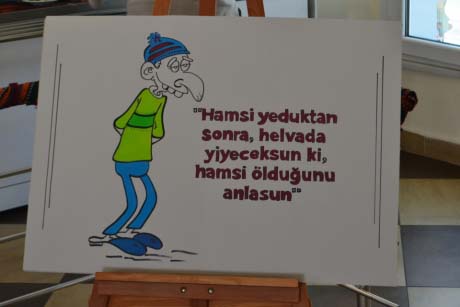 ""Hamsi yeduktan
sonra, helvada
yiyeceksun ki,
hamsi öldüğunu
anlasun""